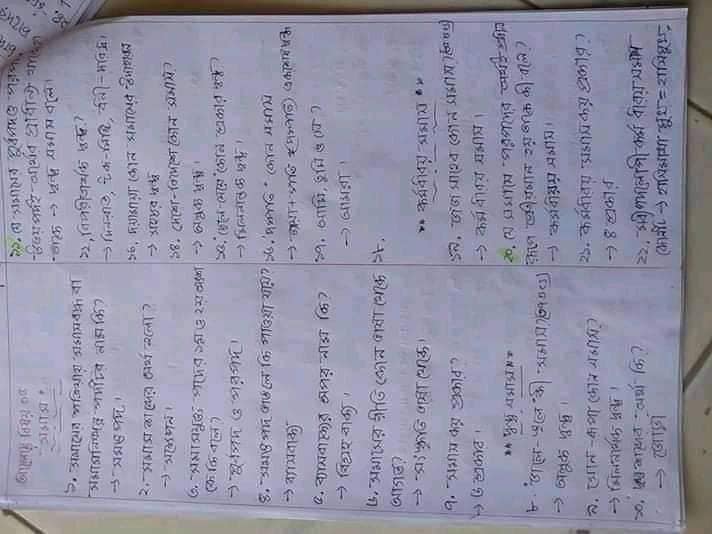 আলোচ্য বিষয় ০৪
সমাস *
১. সমাসের প্রক্রিয়ায় সমাসবদ্ধ বা
সমাসনিষ্পন্ন পদটির নাম কি?
→ সমস্ত পদ।
২. সমাস শব্দের অর্থ হলো?
→ সংক্ষেপন।
৩. সমাসযুক্ত পদের ১ম ও ২য় অংশ
কে কি বলে?
→ পূর্বপদ ও পরপদ।
৪. সমস্ত পদ ভাঙলে কি পাওয়া যায়?
→ ব্যাসবাক্য
৫. ব্যাসবাক্যের অপর নাম কি?
→ বিগ্রহ বাক্য।
৬. সমাসের রীতি কোন ভাষা থেকে
আগত?
→ সংস্কৃত ভাষা থেকে।
৭. সমাস কয় প্রকার?
→ ৬ প্রকার।
** দ্বন্দ্ব সমাস **
৮. 'জলে-স্থলে' কী সমাস?
→ অলুক দ্বন্দ্ব।
৯. সোনা-রূপা কোন সমাস?
→ মিলনার্থক দ্বন্দ্ব।
১০. দ্বন্দ্ব শব্দের অর্থ কি?
→ জোড়া
১১. যে সমাসের পূর্বপদ ও পরপদ
উভয় পদই অর্থের প্রাধান্য থাকে
তাকে → দ্বন্দ্ব সমাস বলে।
১২. বিপরীতার্থক দ্বন্দ্ব?
→ দিনরাত, টক-মিষ্টি, ধনী-দরিদ্র।
দয়ামায়া কোন সমাসের উদাহরণ
→ দ্বন্দ্ব
১৪. দেশে-বিদেশে কোন সমাস?
→ অলুক দ্বন্দ্ব।
১৫. 'ছেলে-মেয়ে' কোন প্রকার দ্বন্দ্ব?
→ মিলনার্থক দ্বন্দ্ব।
১৬. 'দম্পতি' কোন সমাস
→ জায়া + পতি = (দম্পতি) একশেষ দ্বন্দ্ব
১৭. আমি, তুমি ও সে?
→ আমরা।
১৮.
** কর্মধারয় সমাস **
১৯. জজ সাহেব কোন সমাস?
→ কর্মধারয় সমাস।
২০. যে সমাসে পরপদের অর্থই প্রধান
রূপে প্রতীয়মান হয় তাকে কী বলে?
→ কর্মধারয় সমাস।
২১. কর্মধারয় সমাস কয় প্রকার?
→ ৪ প্রকার
২২. মধ্যপদলোপী কর্মধারয় সমাস
কোনটি → হাসিমাখা মুখ = হাসিমুখ,